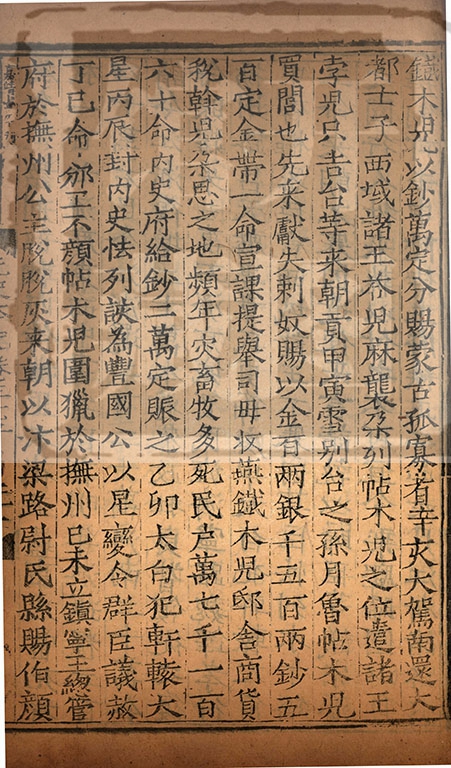 鐵木兒以鈔萬定分賜蒙古孤寡者辛亥大駕南還大
都壬子西域諸王荅兒麻襲朶列帖木兒之位遣諸王
孛兒只吉台等来朝貢甲寅雪别台之孫月魯帖木兒
買閭也先来獻失剌奴賜以金百兩銀千五百兩鈔五
百定金帶一命宣課提舉司毋收燕鐵木兒邸舍商貨
稅斡兒朶思之地頻年灾畜牧多死民户萬七千一百
六十命内史府給鈔二萬定賑之乙卯太白犯軒轅大
星丙辰封内史怯列該為豐國公以星變令群臣議赦
丁巳命邠王不顔帖木兒圍獵於撫州己未立鎮寧王緫管
府於撫州公主脫脫灰来朝以汴梁路尉氏縣賜伯顔